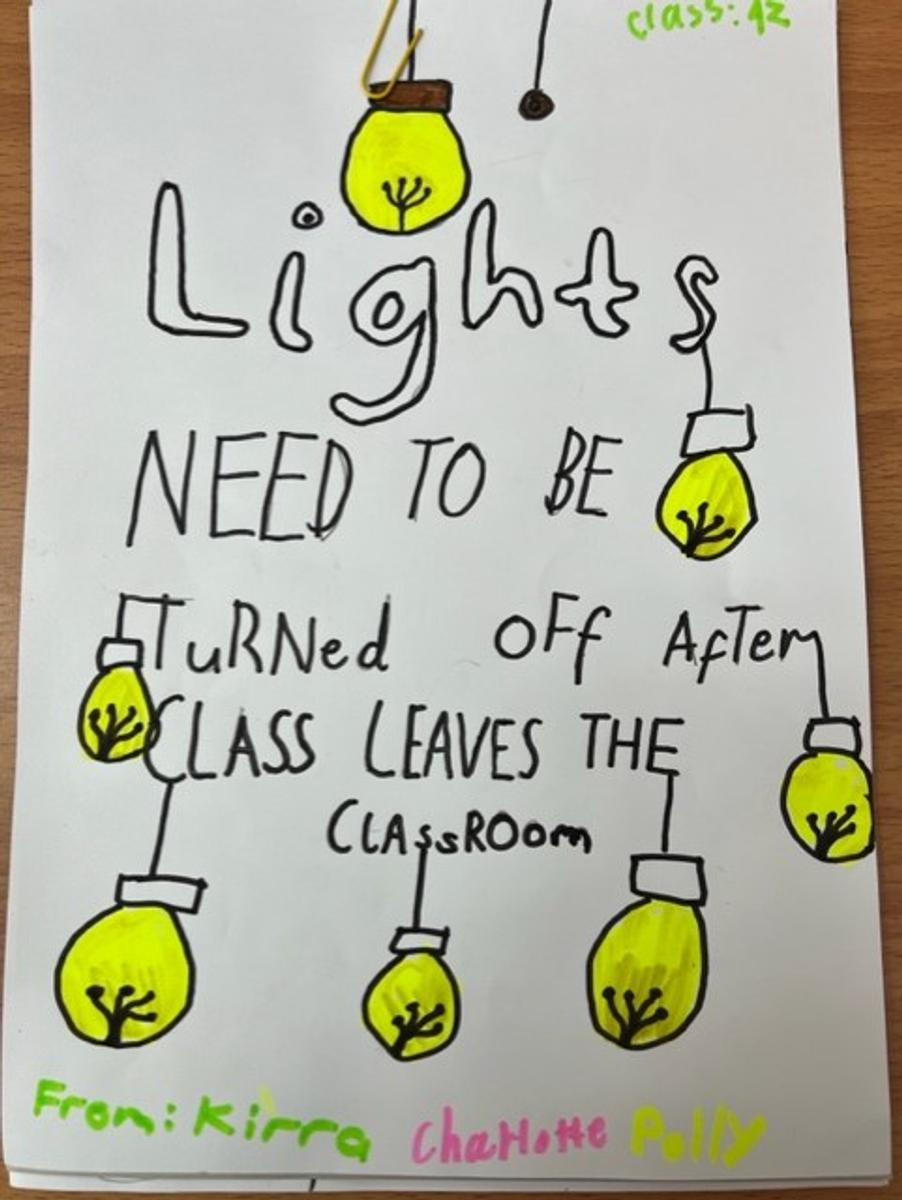 class: 42
Lights
NEED TO BE
TuRNed oFf AfTer
CLASS LEAVES THE
ClAssROom
From: Kirra Charlotte Polly